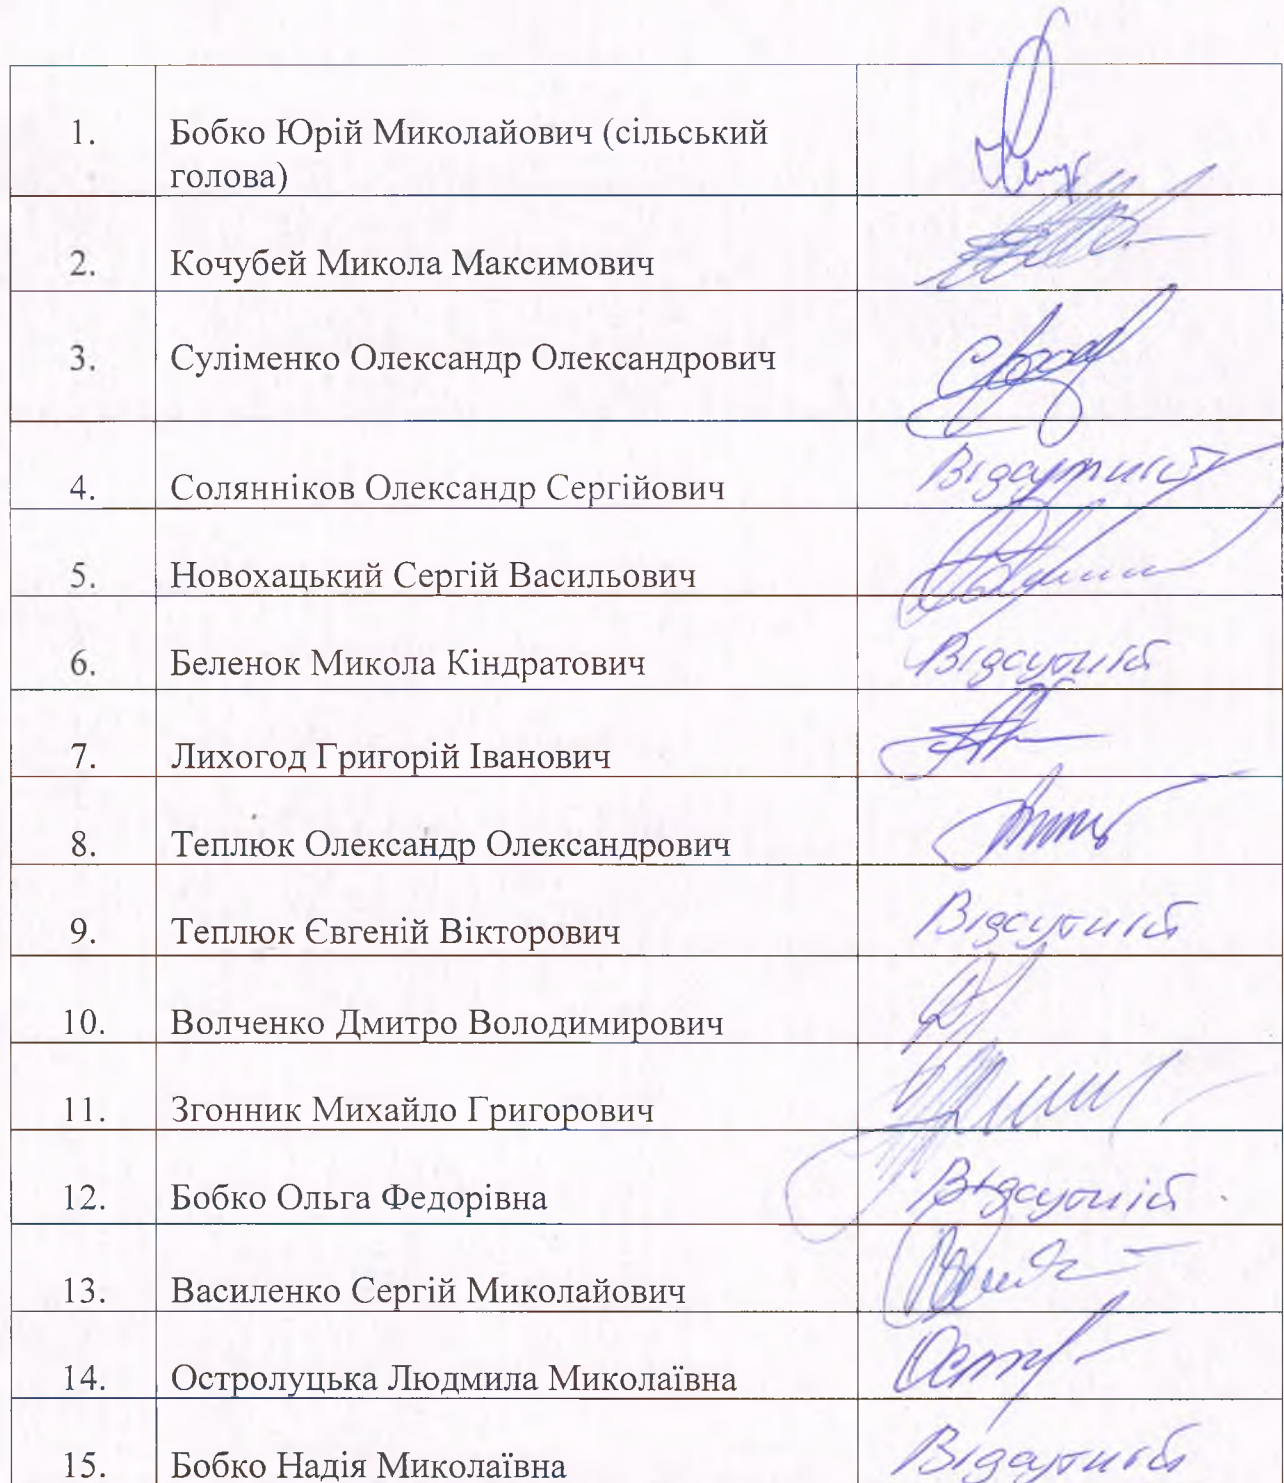 1. Бобко Юрій Миколайович (сільський
голова)
2. Кочубей Микола Максимович
3. Суліменко Олександр Олександрович
4. Солянніков Олександр Сергійович Відсутній
5. Новохацький Сергій Васильович
6. Беленок Микола Кіндратович Відсутній
7. Лихогод Григорій Іванович
8. Теплюк Олександр Олександрович
9. Теплюк Євгеній Вікторович Відсутній
10. Волченко Дмитро Володимирович
11. Згонник Михайло Григорович
12. Бобко Ольга Федорівна Відсутній
13. Василенко Сергій Миколайович
14. Остролуцька Людмила Миколаївна
15. Бобко Надія Миколаївна Відсутній